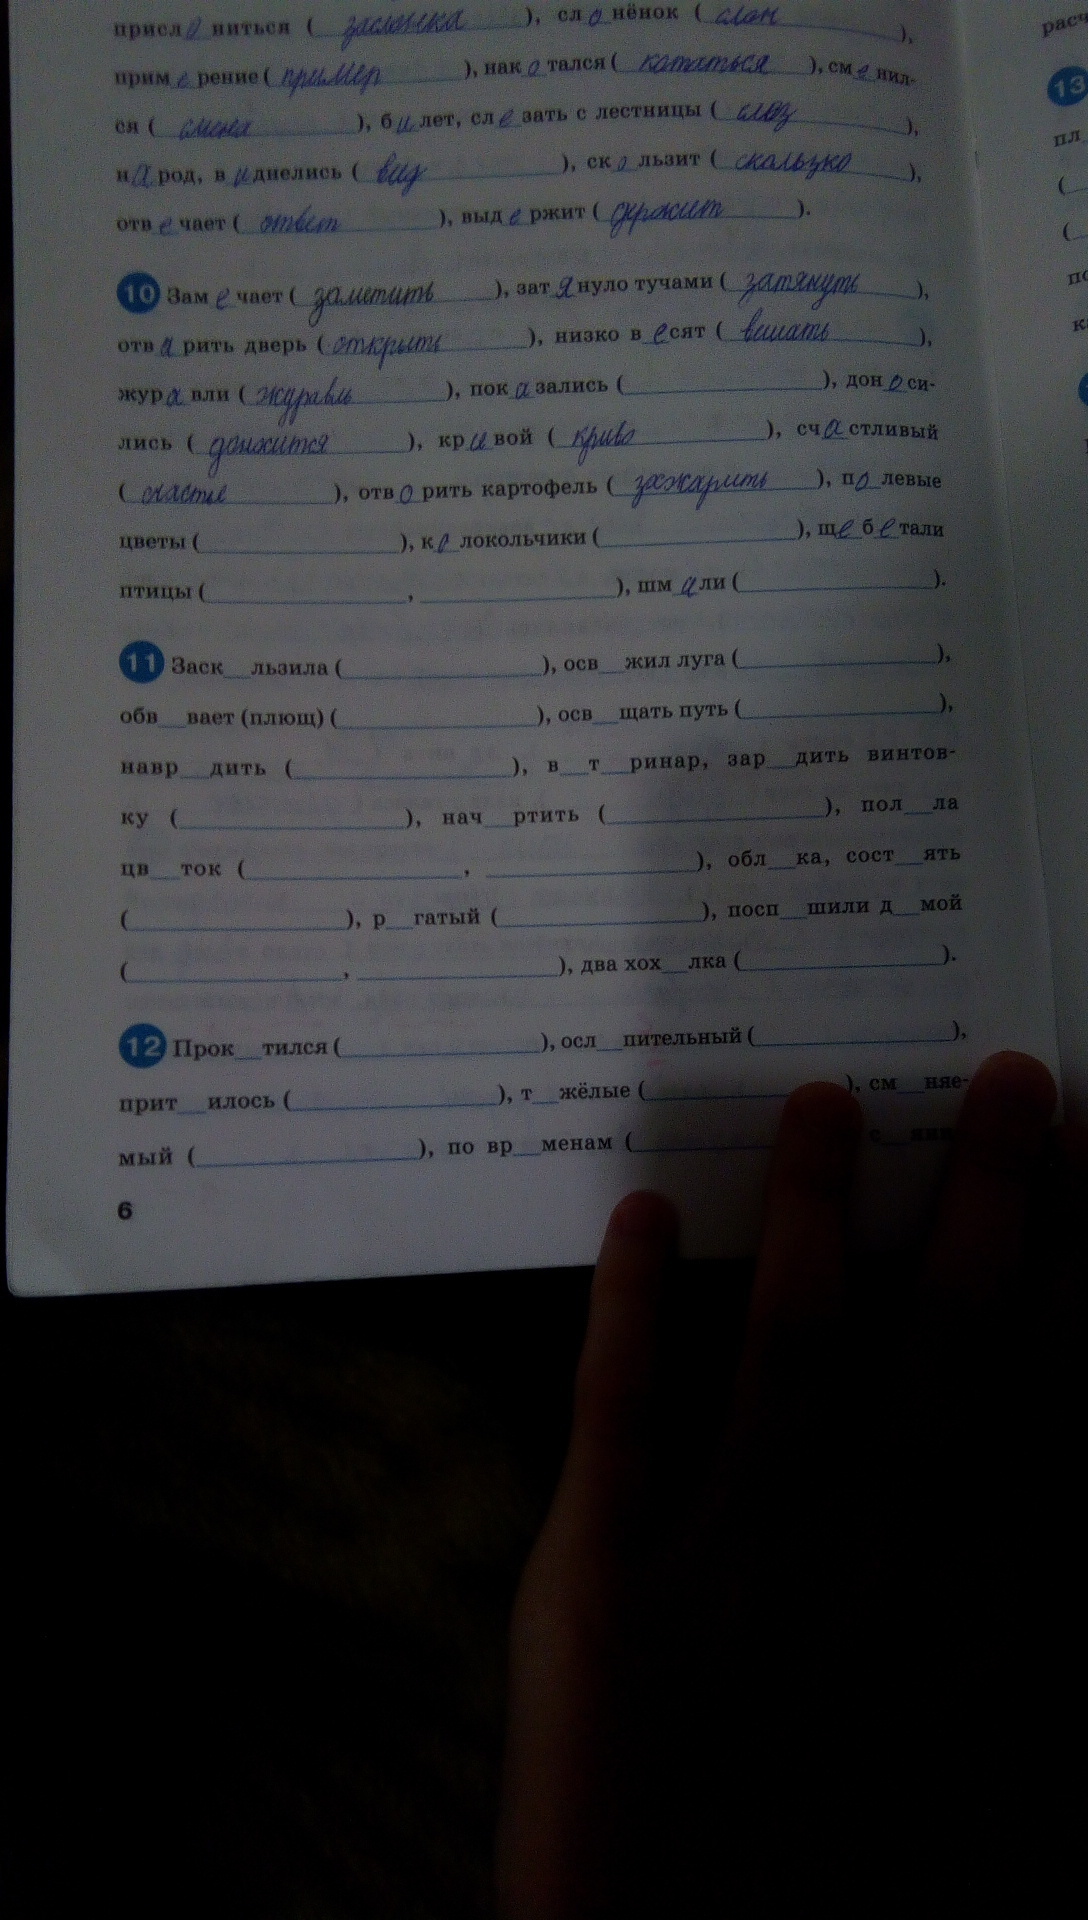 присло ниться ( заслонка ), сл о нёнок ( слон ),
прим е рение ( пример ), нак о тался ( кататься ), см е нил-
ся ( смена ), б и лет, сл е зать с лестницы ( слез ),
н а род, в и днелись ( вид ), ск о льзит ( скользко ),
отв е чает ( ответ ), выд е ржит ( держит ).
10 Зам е чает ( заметить ), зат я нуло тучами ( затянуть ),
отв а рить дверь ( открыть ), низко в е сят ( вешать ),
жур а вли ( журавль ), пок а зались ( ), дон о си-
лись ( доносится ), кр и вой ( криво ), сч а стливый
( счастье ), отв о рить картофель ( ), п о левые
цветы ( ), к о локольчики ( ), щ е б е тали
птицы ( , ), шм а ли ( ).
11 Заск__льзила ( ), осв__жил луга ( ),
обв__вает (плющ) ( ), осв__щать путь ( ),
навр__дить ( ), в__т__ринар, зар__дить винтов-
ку ( ), нач__ртить ( ), пол__ла
цв__ток ( , ), обл__ка, сост__ять
( ), р__гатый ( ), посп__шили д__мой
( , ), два хох__лка ( ).
12 Прок__тился ( ), осл__пительный ( ),
прит__илось ( ), т__жёлые ( ), см__няе-
мый ( ), по вр__менам (
6
13
пл
(
(
по